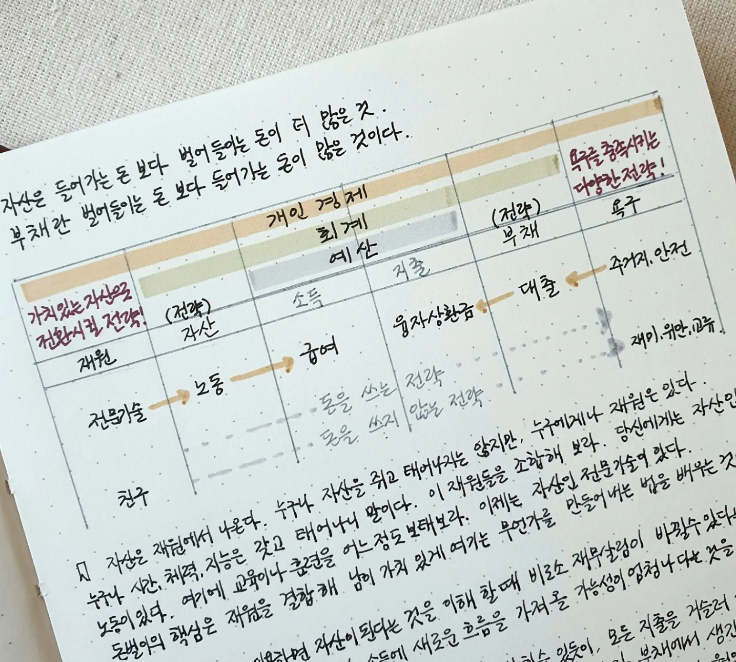 자산은 들어가는 돈 보다 벌어들이는 돈이 더 많은 것.
부채란 벌어들이는 돈 보다 들어가는 돈이 많은 것이다.
개인 경제
회계
예산
가치있는 자산으로
전환시킬 전략!
(전략)
자산
소득
지출
(전략)
부채
욕구를 충족시키는
다양한 전략!
욕구
재원
전문기술
노동
급여
융자상환금
대출
주거지, 안전
재미, 위안, 교류
친구
돈을 쓰는 전략
돈을 쓰지 않는 전략
자산은 재원에서 나온다. 누구나 자산을 쥐고 태어나지는 않지만, 누구에게나 재원은 있다.
누구나 시간, 체력, 지능은 갖고 태어나니 말이다. 이 재원들을 조합해 보라. 당신에게는 자산인
노동이 있다. 여기에 교육이나 훈련을 어느정도 보태보라. 이제는 자산인 전문기술이 있다.
돈벌이의 핵심은 재원을 결합해 남이 가치 있게 여기는 무언가를 만들어 내는 법을 배우는 것
하면 자산이 된다는 것을 이해 할 때 비로소 재무살림이 바뀔수 있다
소득에 새로운 흐름을 가져올 가능성이 엄청나다는 것을
있듯이, 모든 지출을 거슬러
부채에서 생긴